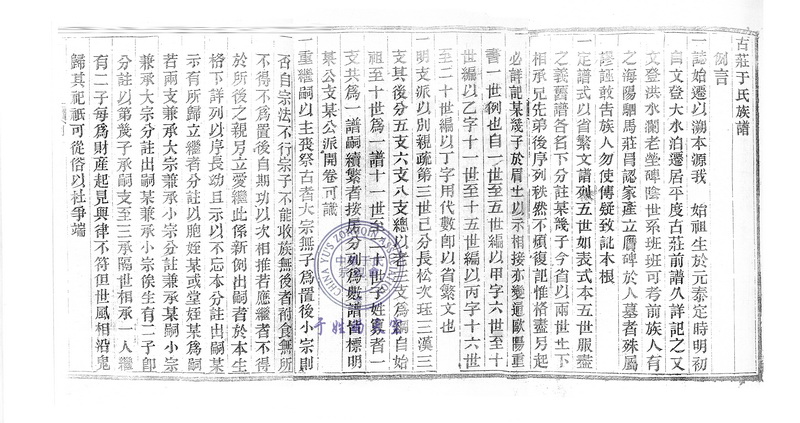 古莊于氏族譜
例言
一誌始遷以溯本源我　始祖生於元泰定時明初
自文登大水泊遷居平度古莊前譜久詳記之又
文登洪水瀾老塋碑陰世系班班可考前族人有
之海陽駟馬莊冒認家產立贋碑於人墓者殊屬
謬誣敢告族人勿使傳疑致訛本根
一定譜式以省繁文譜列五世如表式本五世服盡
之義舊譜各名下分註某幾子今省以兩世上下
相承兄先弟後序列秩然不煩複記惟格盡另起
必詳記某幾子於眉上以示相接亦變通歐陽重
書一世例也自一世至五世編以甲字六世至十
世編以乙字十一世至十五世編以丙字十六世
至二十世編以丁字用代數即以省繁文也
一明支派以別親疏第三世已分長松次珽三漢三
支其後分五支六支八支總以老三支為綱自始
祖至十世為一譜十一世至二十世子姓衆者一
支共為一譜嗣續繁者按房分列為數譜皆標明
某公支某公派開卷可識
一重繼嗣以主喪祭古者大宗無子為置後小宗則
否自宗法不行宗子不能收族無後者祔食無所
不得不為置後自期功以次相推者應繼者不得
於所後之親另立愛繼此係新例出嗣者於本生
格下詳列以序長幼且示以不忘本分註出嗣某
示有所歸立繼者分註以胞姪某或堂姪某為嗣
若兩支兼承大宗兼承小宗分註兼承某嗣小宗
兼承大宗分註出嗣某兼承小宗俟生有二子卽
分註以第幾子承嗣支至三承隔世相承一人繼
有二子每為財產起見與律不符但世風相沿鬼
歸其祀祇可從俗以社爭端
CHINA YU'S
中華于氏
于姓尚家窯